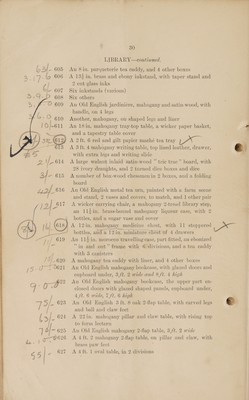 30
LIBRARY—continued.
63/- 605 An 8 in. parqueterie tea caddy, and 4 other boxes
3.17.6 606 A 13½ in. brass and ebony inkstand, with taper stand and
2 cut glass inks
607 Six inkstands (various)
608 Six others
609 An Old English jardiniere, mahogany and satin wood, with
handle, on 4 legs
610 Another, mahogany, on shaped legs and liner
611 An 18 in. mahogany tray-top table, a wicker paper basket,
and a tapestry table cover
612 A 2 ft. 6 red and gilt papier mache tea tray
613 A 3 ft. 4 mahogany writing table, top lined leather, drawer,
with extra legs and writing slide
614 A large walnut inlaid satin-wood "tric trac" board, with
28 ivory draughts, and 2 turned dice boxes and dice
615 A number of box-wood chessmen in 2 boxes, and a folding
board
42/- 616 An Old English metal tea urn, painted with a farm scene
and stand, 2 vases and covers, to match, and 1 other pair
12/- 617 A wicker carrying chair, a mahogany 3-tread library step,
an 11½ in. brass-bound mahogany liqueur case, with 2
bottles, and a sugar vase and cover
618 A 12 in. mahogany medicine chest, with 11 stoppered
bottles, and a 17 in. miniature chest of 4 drawers
619 An 11½ in. morocco travelling-case, part fitted, an ebonized
"in and out" frame with 6 divisions, and a tea caddy
with 2 canisters
620 A mahogany tea caddy with liner, and 4 other boxes
621 An Old English mahogany bookcase, with glazed doors and
cupboard under, 6 ft. 2 wide and 8 ft. 4 high
622 An Old English mahogany bookcase, the upper part enclosed
doors with glazed shaped panels, cupboard under,
4 ft. 6 wide, 7 ft. 6 high
73/- 623 An Old English 3 ft. 8 oak 2-flap table, with carved legs
and ball and claw feet
65/- 624 A 23 in. mahogany pillar and claw table, with rising top
to form lectern
625 An Old English mahogany 2-flap table, 3 ft. 2 wide
626 A 4 ft. 2 mahogany 2-flap table, on pillar and claw, with
brass paw feet
55/- 627 A 4 ft. 1 oval table, in 2 divisions